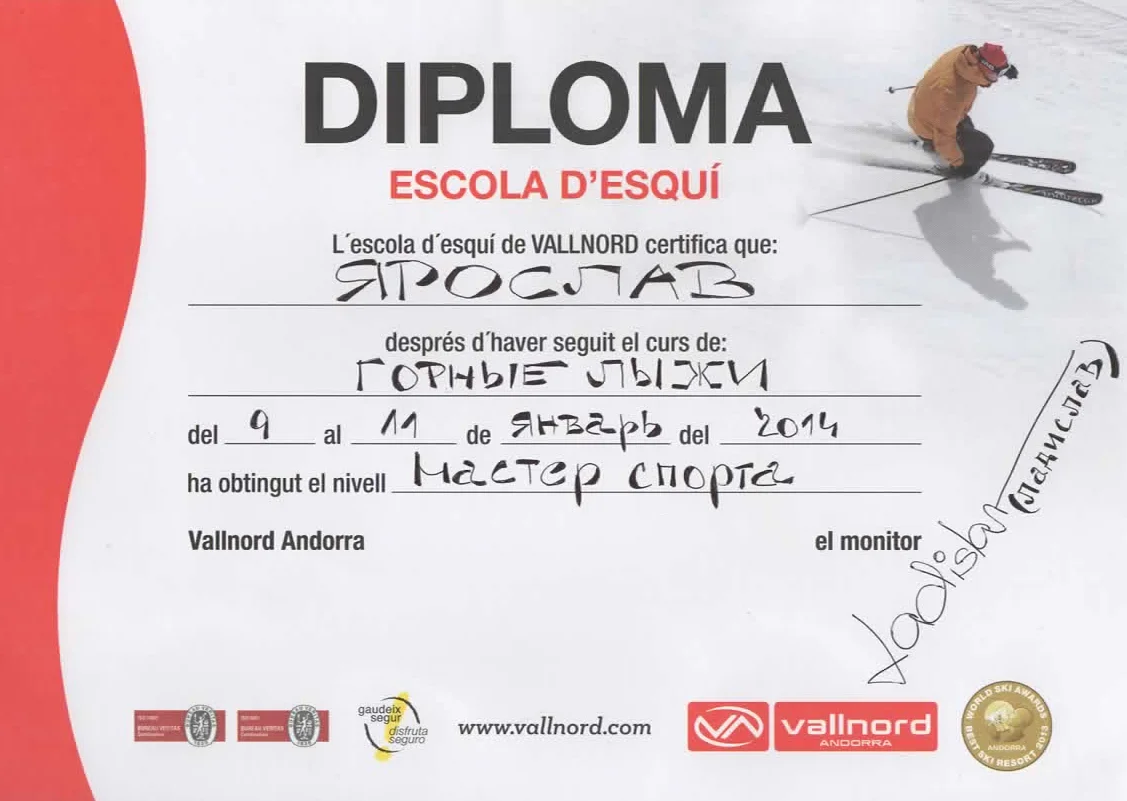 DIPLOMA
ESCOLA D'ESQUÍ
L´escola d´esquí de VALLNORD certifica que:
ЯРОСЛАВ
després d´haver seguit el curs de:
ГОРНЫЕ ЛЫЖИ
del 9 al 11 de январь del 2014
ha obtingut el nivell Мастер спорта
Vallnord Andorra
el monitor
Vladislav (Владислав)
BUREAU VERITAS
Certification
BUREAU VERITAS
Certification
gaudeix
segur
disfruta
seguro
www.vallnord.com
vallnord
ANDORRA
WORLD SKI AWARDS
ANDORRA
BEST SKI RESORT 2013